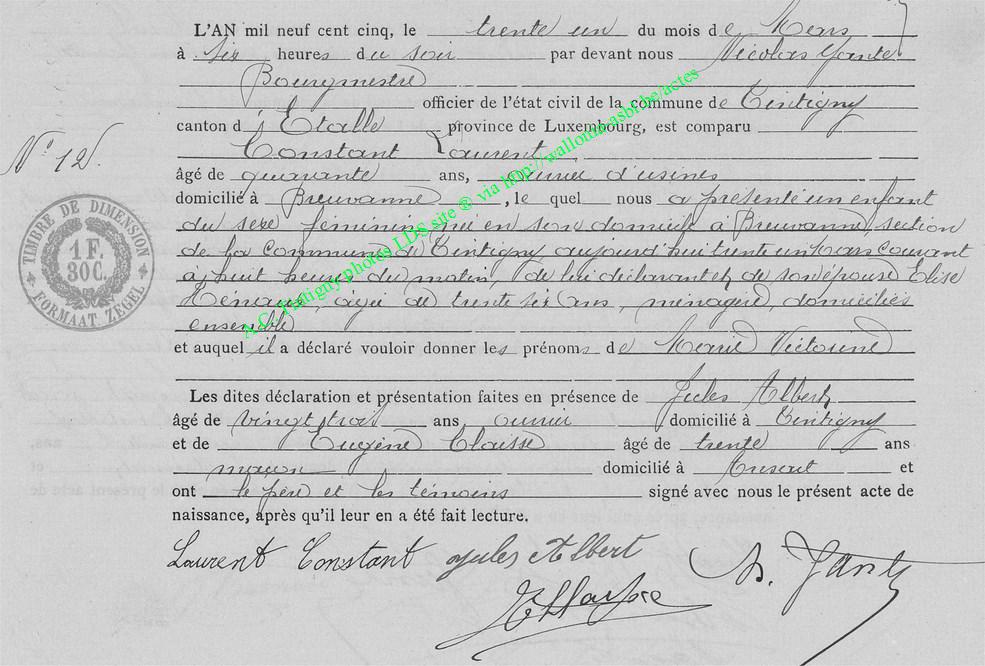 L'AN mil neuf cent cinq, le trente un du mois de Mars
à six heures du soir par devant nous Nicolas Jante
Bourgmestre
officier de l'état civil de la commune de Tintigny
canton d'Etalle province de Luxembourg, est comparu
Constant Laurent
âgé de quarante ans, ouvrier d'usines
domicilié à Breuvanne, le quel nous a présenté un enfant
du sexe féminin né en son domicile à Breuvanne, section
de la Commune de Tintigny aujourd'hui trente un Mars courant
à huit heures du matin, de lui déclarant et de son épouse Elise
âgée de trente six ans, ménagère, domiciliés
ensemble
et auquel il a déclaré vouloir donner les prénoms de Marie Victorine
Les dites déclaration et présentation faites en présence de Jules Albert
âgé de vingt trois ans ouvrier domicilié à Tintigny
et de Eugène Claisse âgé de trente ans
maçon domicilié à Ansart et
ont le père et les témoins signé avec nous le présent acte de
naissance, après qu'il leur en a été fait lecture.
Laurent Constant Jules Albert
N. Jante
N° 12
TIMBRE DE DIMENSION
1 F.
30 C.
FORMAAT ZEGEL
A.C. Tintigny photos LDS site ® via http://wallonia-asbl.be/actes